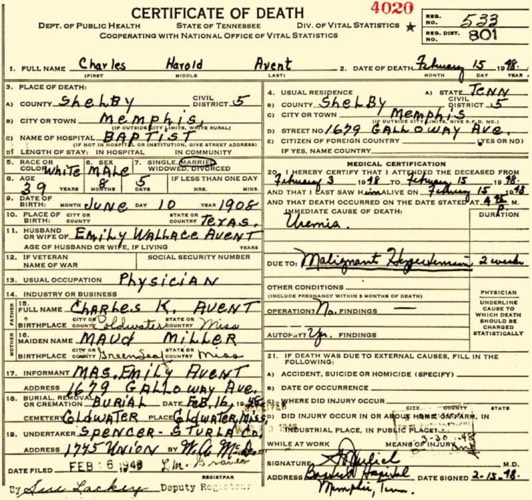 CERTIFICATE OF DEATH
4020
DEPT. OF PUBLIC HEALTH STATE OF TENNESSEE DIV. OF VITAL STATISTICS
COOPERATING WITH NATIONAL OFFICE OF VITAL STATISTICS
REG. NO. 533
REG. DIST. 801
1. FULL NAME Charles Harold Avent
(FIRST) (MIDDLE) (LAST)
2. DATE OF DEATH February 15 1948
MONTH DAY YEAR
3. PLACE OF DEATH:
A) COUNTY SHELBY CIVIL DISTRICT 5
B) CITY OR TOWN MEMPHIS,
(IF OUTSIDE CITY LIMITS, WRITE RURAL)
C) NAME OF HOSPITAL BAPTIST
(IF NOT IN HOSPITAL OR INSTITUTION, GIVE STREET ADDRESS)
D) LENGTH OF STAY: IN HOSPITAL IN COMMUNITY
4. USUAL RESIDENCE A) STATE TENN
B) COUNTY SHELBY CIVIL DISTRICT 5
C) CITY OR TOWN MEMPHIS
D) STREET NO 1679 GALLOWAY AVE.
E) CITIZEN OF FOREIGN COUNTRY (YES OR NO)
IF YES, NAME COUNTRY
5. RACE OR COLOR WHITE 6. SEX MALE 7. SINGLE, MARRIED WIDOWED, DIVORCED
8. AGE 39 YEARS 8 MONTHS 5 DAYS IF LESS THAN ONE DAY HRS. MIN.
9. DATE OF BIRTH: JUNE 10 1908
MONTH DAY YEAR
10. PLACE OF BIRTH: CITY OR COUNTY STATE OR COUNTRY TEXAS.
11. HUSBAND OR WIFE OF EMILY WALLACE AVENT
AGE OF HUSBAND OR WIFE, IF LIVING YEARS
12. IF VETERAN NAME OF WAR SOCIAL SECURITY NUMBER
13. USUAL OCCUPATION PHYSICIAN
14. INDUSTRY OR BUSINESS
FATHER 15. FULL NAME CHARLES K. AVENT
BIRTHPLACE CITY OR COUNTY Coldwater STATE OR COUNTRY Miss
MOTHER 16. MAIDEN NAME MAUD MILLER
BIRTHPLACE CITY OR COUNTY STATE OR COUNTRY Miss
17. INFORMANT MRS. EMILY AVENT
ADDRESS 1679 GALLOWAY AVE.
18. BURIAL, REMOVAL OR CREMATION BURIAL DATE FEB, 16, 1948
CEMETERY COLDWATER PLACE COLDWATER, MISS
19. UNDERTAKER SPENCER-STURLA CO.
ADDRESS 1745 UNION BY
DATE FILED FEB 16 1948 L.M. Graves
REGISTRAR
By Sue Lackey Deputy Registrar
MEDICAL CERTIFICATION
20. I HEREBY CERTIFY THAT I ATTENDED THE DECEASED FROM
February 3 1948 TO February 15 1948
AND THAT I LAST SAW HIM ALIVE ON February 15 1948
AND THAT DEATH OCCURRED ON THE DATE STATED AT M.
IMMEDIATE CAUSE OF DEATH: DURATION
Uremia.
DUE TO: Malignant Hypertension 2 weeks
OTHER CONDITIONS
(INCLUDE PREGNANCY WITHIN 3 MONTHS OF DEATH)
OPERATION? No. FINDINGS
AUTOPSY? Yes. FINDINGS
PHYSICIAN
UNDERLINE CAUSE TO WHICH DEATH SHOULD BE CHARGED STATISTICALLY
21. IF DEATH WAS DUE TO EXTERNAL CAUSES, FILL IN THE FOLLOWING:
A) ACCIDENT, SUICIDE OR HOMICIDE (SPECIFY)
B) DATE OF OCCURRENCE
C) WHERE DID INJURY OCCUR CITY COUNTY STATE
D) DID INJURY OCCUR IN OR ABOUT HOME OR FARM, IN
INDUSTRIAL PLACE, IN PUBLIC PLACE?
WHILE AT WORK MEANS OF INJURY
3-30-48
SIGNATURE M.D.
ADDRESS Baptist Hospital DATE SIGNED 2-15-48
Memphis, Tenn.